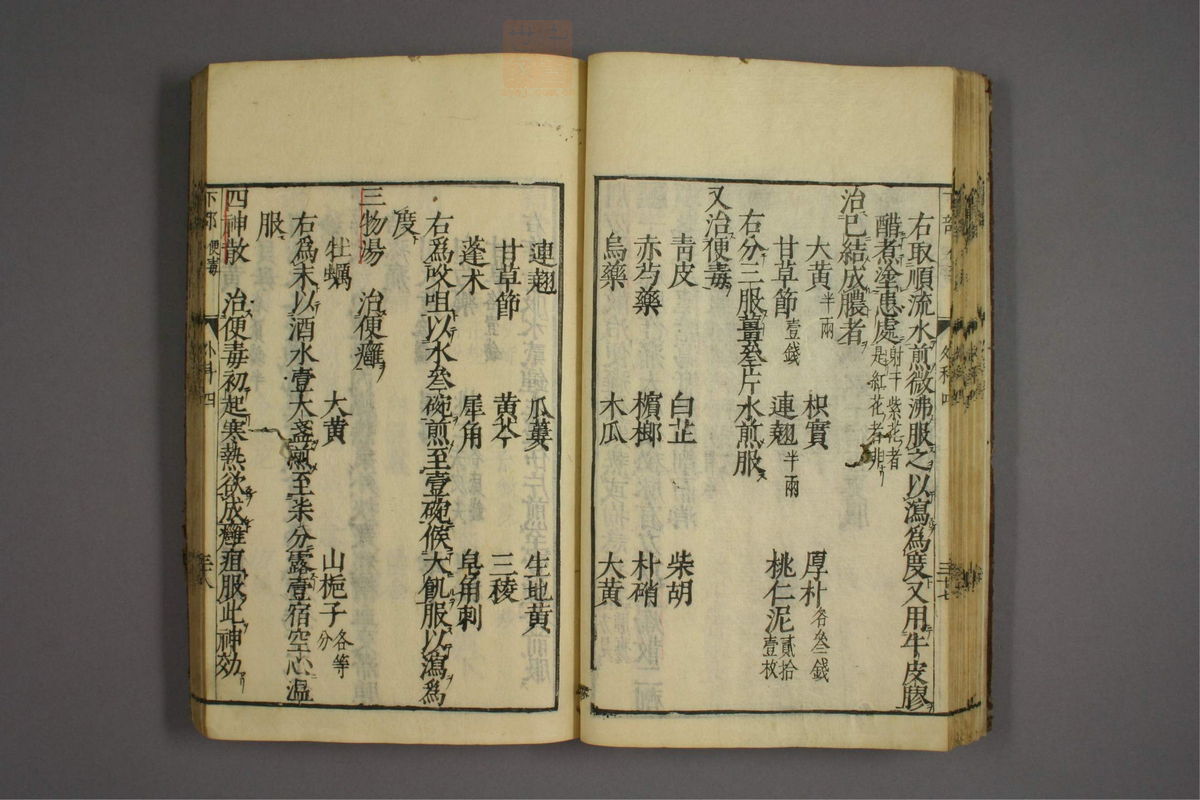 右取順流水煎微沸服之以瀉為度又用牛皮膠
醋者塗患處射干紫花者是紅花者非
治已結成膿者
大黃半兩 枳實 厚朴各叄錢
甘草節壹錢 連翹半兩 桃仁泥貳拾壹枚
右分三服薑叄片水煎服
又治便毒
青皮 白芷 柴胡
赤芍藥 檳榔 朴硝
烏藥 木瓜 大黃
連翹 瓜蔞 生地黃
甘草節 黃芩 三稜
蓬朮 犀角 皂角刺
右為㕮咀以水叄碗煎至壹碗候大飢服以瀉為
度
三物湯 治便癰
牡蠣 大黃 山梔子各等分
右為末以酒水壹大盞煎至柒分露壹宿空心溫
服
四神散 治便毒初起寒熱欲成癰疽服此神効
下部 便毒 外科四